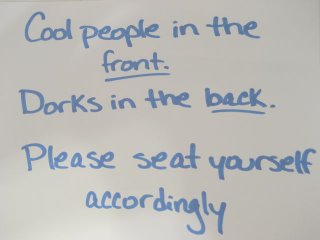 Cool people in the
front.
Dorks in the back.
Please seat yourself
accordingly